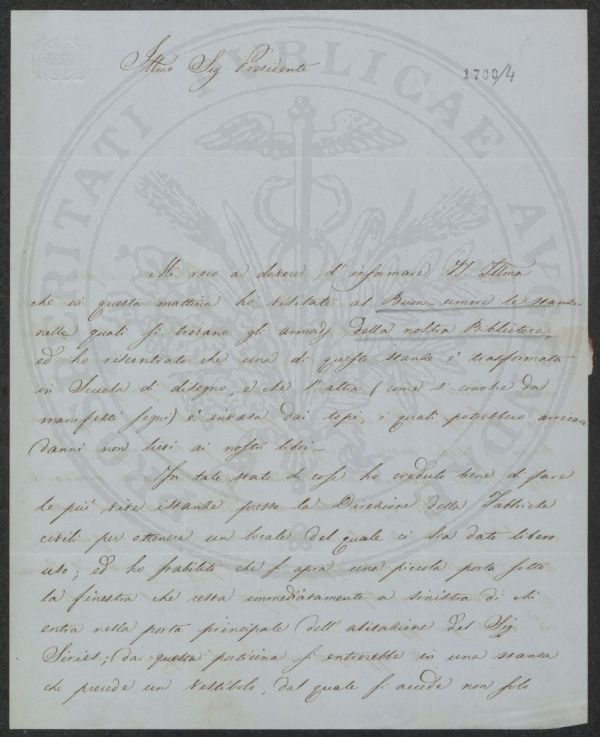 Illmo Sig Presidente
1700/4
Mi reco a dovere d'informare VS Illma
che in questa mattina ho visitate al Buon umore le stanze
nelle quali si trovano gli armadj della nostra Biblioteca,
ed ho riscontrato che una di queste stanze è trasformata
in Scuola di disegno, e che l'altra (come si conosce da
manifesti segni) è invasa dai topi, i quali potrebbero arrecare
danni non lievi ai nostri libri_
In tale stato di cose ho creduto bene di fare
le più vive istanze presso la Direzione delle Fabbriche
civili per ottenere un locale del quale ci sia dato libero
uso; ed ho stabilito che s'apra una piccola porta sotto
la finestra che resta immediatamente a sinistra di chi
entra nella porta principale dell'abitazione del Sig
Siries; da questa porticina si entrerebbe in una stanza
che precede un Vestibolo, dal quale si accede non solo
PROSPERITATI PVBLICAE AVG